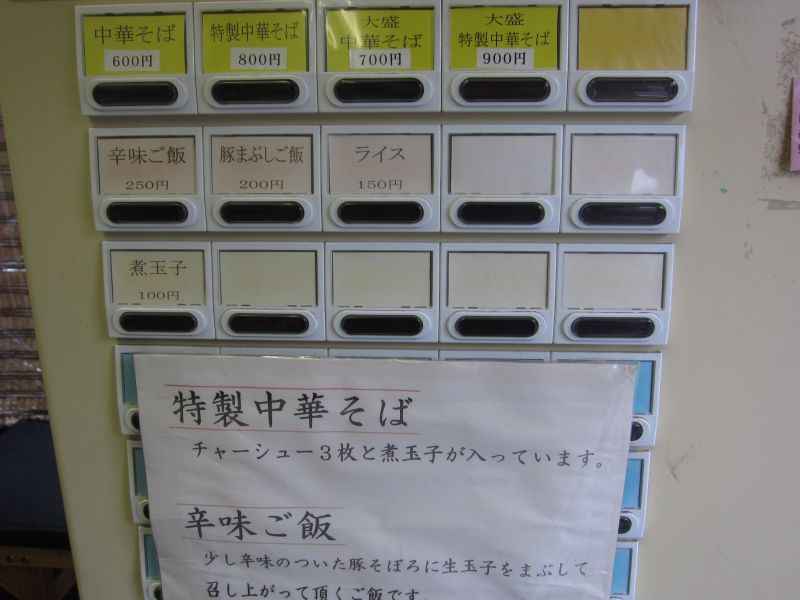 中華そば
600円
特製中華そば
800円
大盛
中華そば
700円
大盛
特製中華そば
900円
辛味ご飯
250円
豚まぶしご飯
200円
ライス
150円
煮玉子
100円
特製中華そば
チャーシュー3枚と煮玉子が入っています。
辛味ご飯
少し辛味のついた豚そぼろに生玉子をまぶして
召し上がって頂くご飯です